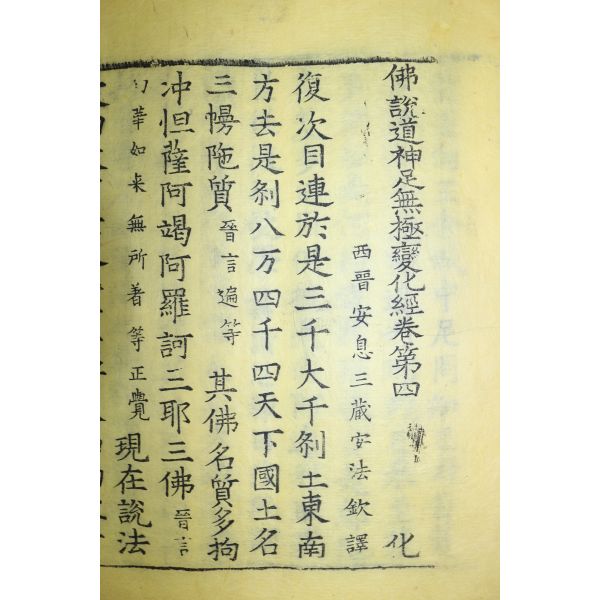 佛說道神足無極變化經卷第四 化
西晉安息三藏安法欽譯
復次目連於是三千大千刹土東南
方去是刹八万四千四天下國土名
三幔陁質晉言遍等其佛名質多拘
冲怛薩阿竭阿羅訶三耶三佛晉言
幻華如来無所著等正覺現在說法